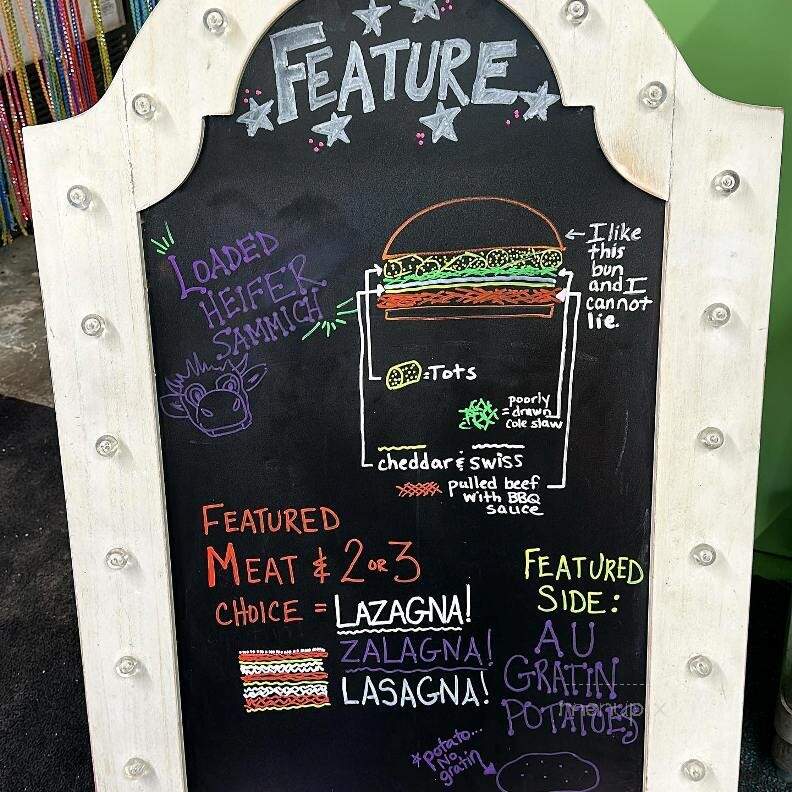 FEATURE
LOADED
HEIFER
SAMMICH
← I like
this
bun
and I
cannot
lie.
=Tots
poorly
= drawn
Cole slaw
cheddar & swiss
pulled beef
with BBQ
sauce
FEATURED
MEAT & 2 OR 3
CHOICE = LAZAGNA!
ZALAGNA!
LASAGNA!
FEATURED
SIDE:
AU
GRATIN
POTATOES
*potato...
No
gratin